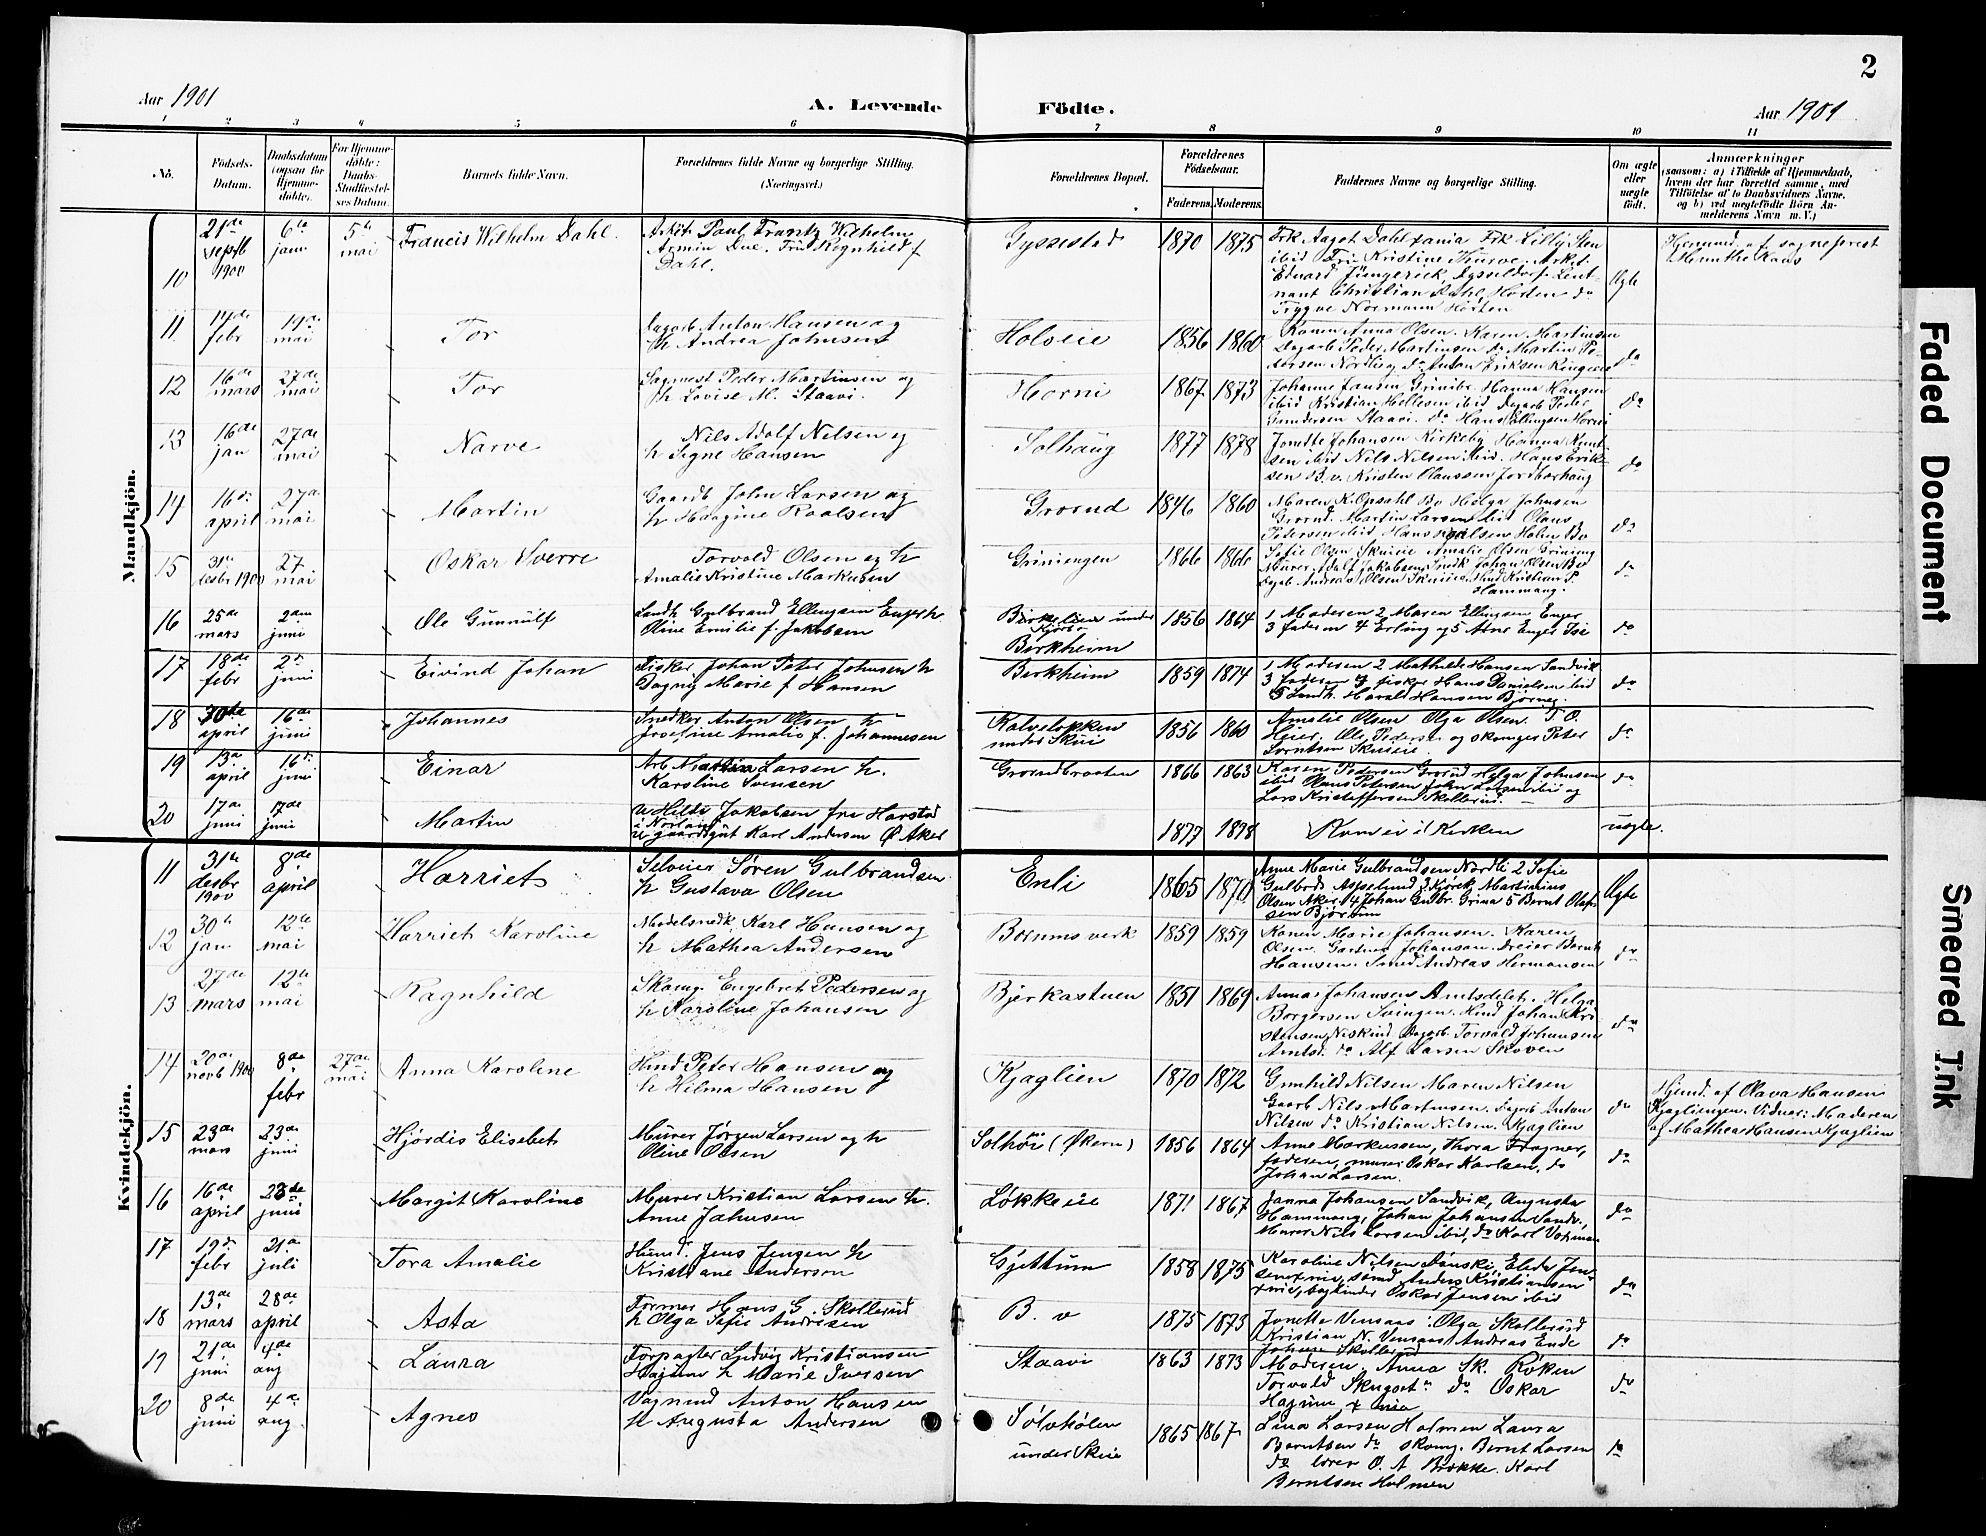 2
Aar 1901
A. Levende
Födte.
Aar 1901
1 2 3 4 5 6 7 8 9 10 11
No.
Födsels-
Datum.
Daabsdatum
(ogsaa for
Hjemme-
døbte).
For Hjemme-
døbte:
Daabs-
Stadfæstel-
ses Datum.
Barnets fulde Navn.
Forældrenes fulde Navne og borgerlige Stilling.
(Næringsvei.)
Forældrenes Bopæl.
Forældrenes
Fødselsaar.
Faderens. Moderens.
Faddernes Navne og borgerlige Stilling.
Om ægte
eller
uægte
født.
Anmærkninger
(saasom: a) i Tilfælde af Hjemmedaab,
hvem der har forrettet samme, med
Tilføielse af to Daabsvidners Navne,
og b) ved uægtefødte Børn An-
melderens Navn m. V.)
Mandkjön.
10
21de
septb
1900
6te
jan
5te
mai
Francis Wilhelm Dahl.
Arkit. Paul Frantz Wilhelm
Armin Due. Fru Ragnhild f
Dahl.
1870 1875
Frk Aagot Dahl xania Frk Lilly Sten
ibid Fru Kristine
Eduard Jüngerick, Dysseldorf Leut-
nant Christian Dahl, Horten do
Trygve Normann Horten
Ægte
Hjemmed. af sogneprest
Munthe Kaas
11
febr
19de
mai
Tor
Dagarb Anton Hansen og
h Andrea Johnsen
Holseie
1856 1860
Karen Anna Olsen. Karen Martinsen
Dagarb Peder Martinsen do Martin Pe-
dersen Nordlig do Anton Eriksen Ringerie
do
12
16de
mars
27de
mai
Tor
Sagmest Peder Martinsen og
h Lovise M. Staavi.
Horni
1867 1873
Johanne Jansen, Grinibr. Hanna Hansen
ibid Kristian Hellesen ibid Dagarb Peder
Gundersen Staavi. do Hans Ellingsen Horni
do
13
16de
jan
27de
mai
Narve
Nils Adolf Nelsen og
h Signe Hansen
Solhaug
1877 1878
Jonette Johansen Kirkeby Hanna Knut-
sen ibid Nils Nilsen ibid. Hans Erik-
sen B.v. Kristen Claussen Jordbærhaug
do
14
16de
april
27de
mai
Martin
Gaardb John Larsen og
h Haagine Roalsen
Grorud
1846 1860
Maren K. Opsahl Bo Helga Johnsen
Grorud. Martin Larsen ibid Olaus
Petersen ibid Hans Holm Bo
do
15
31te
desbr 1900
27
mai
Oskar Sverre
Torvald Olsen og h
Amalie Kristine Markusen
Griniengen
1866 1866
Sofie Olsen Skuieie Amalie Olsen Grinieng
Murer Adolf Jakobsen, Snedk Johan Olsen Bo
Dagarb Andreas Olsen Skuieie Hmd Kristian P.
Hammang.
do
16
25de
mars
2den
juni
Ole Gunnulf
Landh Gulbrand Ellingsen Enger h
Oline Emilie f. Jakobsen
Birkelien under
Kjørbo
Berkheim
1856 1864
1 Moderen 2 Maren Ellingsen Enger
3 faderen 4 Erling og 5 Arne Enger Tjæ
do
17
18de
febr
2de
juni
Eivind Johan
Fisker Johan Peter Johnsen h
Dagny Marie f Hansen
Berkheim
1859 1874
1 Moderen 2 Mathilde Hansen Sandvik
3 faderen 4 fisker Hans Danielsen ibid
5 Landh. Harald Hansen Bjorneg.
do
18
30te
april
16de
juni
Johannes
Snedker Anton Olsen h
Josefine Amalie f. Johannesen
Kalveløkken
under Skui
1856 1860
Amalie Olsen Olga Olsen. T. O.
Heier. Ole Pedersen og skomager Peter
Lorntsen Skuieie
do
19
13de
april
16de
juni
Einar
Arb Martin Larsen h.
Karoline Svensen
Grorudbraaten
1866 1863
Karen Pedersen Grorud Helga Johnsen
ibid Hans Petersen John Larsen ibid og
Lars Kristoffersen Skollerud.
do
20
17de
juni
17de
juni
Martin
u Hilda Jakobsen fra Harstad
i Norland
u gaardsgut Karl Andersen Ø Aker
1877 1878
Kom ei i Kirken
uægte.
Kvindekjön.
11
31te
desbr
1900
8de
april
Harriet
Selveier Søren Gulbrandsen
h Gustava Olsen
Enli
1865 1870
Anne Marie Gulbrandsen Nordli 2 Sofie
Gulbrds Aspelund 3 Kirek. Martinius
Olsen Aker 4 Johan Gulbr. Grina 5 Bernt Olaf-
sen Bjørum
Ægte
12
30te
jan
12te
mai
Harriet Karoline
Modelsnedk. Karl Hansen og
h Mathea Andersen
Bærums verk
1859 1859
Karen Marie Johansen. Karen
Olsen. Gartner Johansen. Dreier Bernt
Hansen. Smed Andreas Hermansen
do
13
27de
mars
12te
mai
Ragnhild
Skomg. Engebret Pedersen og
h Karoline Johansen
Bjerkastuen
1851 1869
Anna Johansen Amtsdelet. Helga
Borgersen Svingen. Hmd Johan Kri
stensen, Niskind Dagarb. Torvald Johansen
Amtsd. do Alf Larsen Skoven
do
14
20de
novb 1900
8de
febr
27de
mai
Anna Karoline
Hmd Peter Hansen og
h Hilma Hansen
Kjaglien
1870 1872
Gunhild Nilsen Maren Nilsen
Gaarb Nils Martinsen. Dagarb Anton
Nilsen do Kristian Nilsen. Kjaglien
do
Hjemd. af Olava Hansen
Kjagliengen. Vidner: Moderen
og Mathea Hansen Kjaglien
15
23de
mars
23de
juni
Hjördis Elisebet
Murer Jörgen Larsen og h
Oline Olsen
Solhöi (Økern)
1856 1864
Anne Markussen, Thora Fragner,
faderen, murer Oskar Karlsen, do
Johan Larsen.
do
16
16de
april
23de
juni
Margit Karoline
Murer Kristian Larsen h.
Anne Jahnsen
Løkkeeie
1871 1867
Janna Johansen Sandvik, Augusta
Hammang, Johan Johansen Sandv.,
Murer Nils Larsen ibid, do Karl
do
17
19de
febr
21de
juli
Tora Amalie
Husmd. Jens Jensen h
Kristiane Anderson
Gjettum
1858 1875
Karoline Nilsen Elida Jen-
sen xnia, smed Anders Kristiansen
xnia, bogbinder Oskar Jensen ibid
do
18
13de
mars
28de
april
Asta
Former Hans G. Skollerud
h Olga Sofie Andresen
B. v
1875 1873
Jonette Vensaas Olga Skollerud
Kristian N. Vensaas Andreas Ende
Johan Skollerud
do
19
21de
juni
4de
aug
Laura
Forpagter Ludvig Kristiansen
Hagum h Marie Iversen
Staavi
1863 1873
Moderen. Anna Sk. Røken
Torvald do Oskar
Hagum xnia
do
20
8de
juni
4de
aug.
Agnes
Vognmd Anton Hansen
h Augusta Andersen
Sølvhølen
under Skui
1865 1867
Lina Larsen Holmen Laura
Berntsen do skomg. Bernt Larsen
do lærer O. A Brække. Karl
Berntsen Holmen
do
Faded Document
Smeared Ink